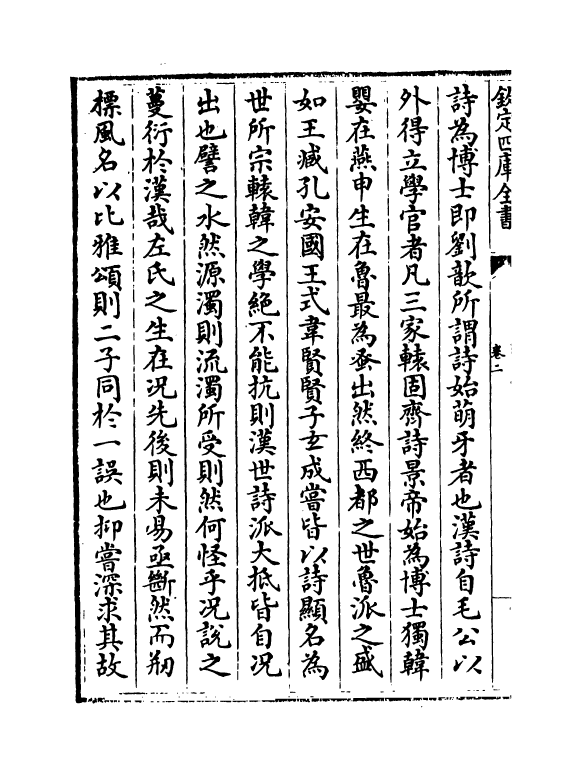 欽定四庫全書
卷二
詩為博士即劉歆所謂詩始萌牙者也漢詩自毛公以
外得立學官者凡三家轅固齊詩景帝始為博士獨韓
嬰在燕申生在魯最為蚤出然終西都之世魯派之盛
如王臧孔安國王式韋賢賢子玄成嘗皆以詩顯名為
世所宗轅韓之學絕不能抗則漢世詩派大抵皆自况
出也譬之水然源濁則流濁所受則然何怪乎况說之
蔓衍於漢哉左氏之生在况先後則未易亟斷然而剏
標風名以比雅頌則二子同於一誤也抑嘗深求其故